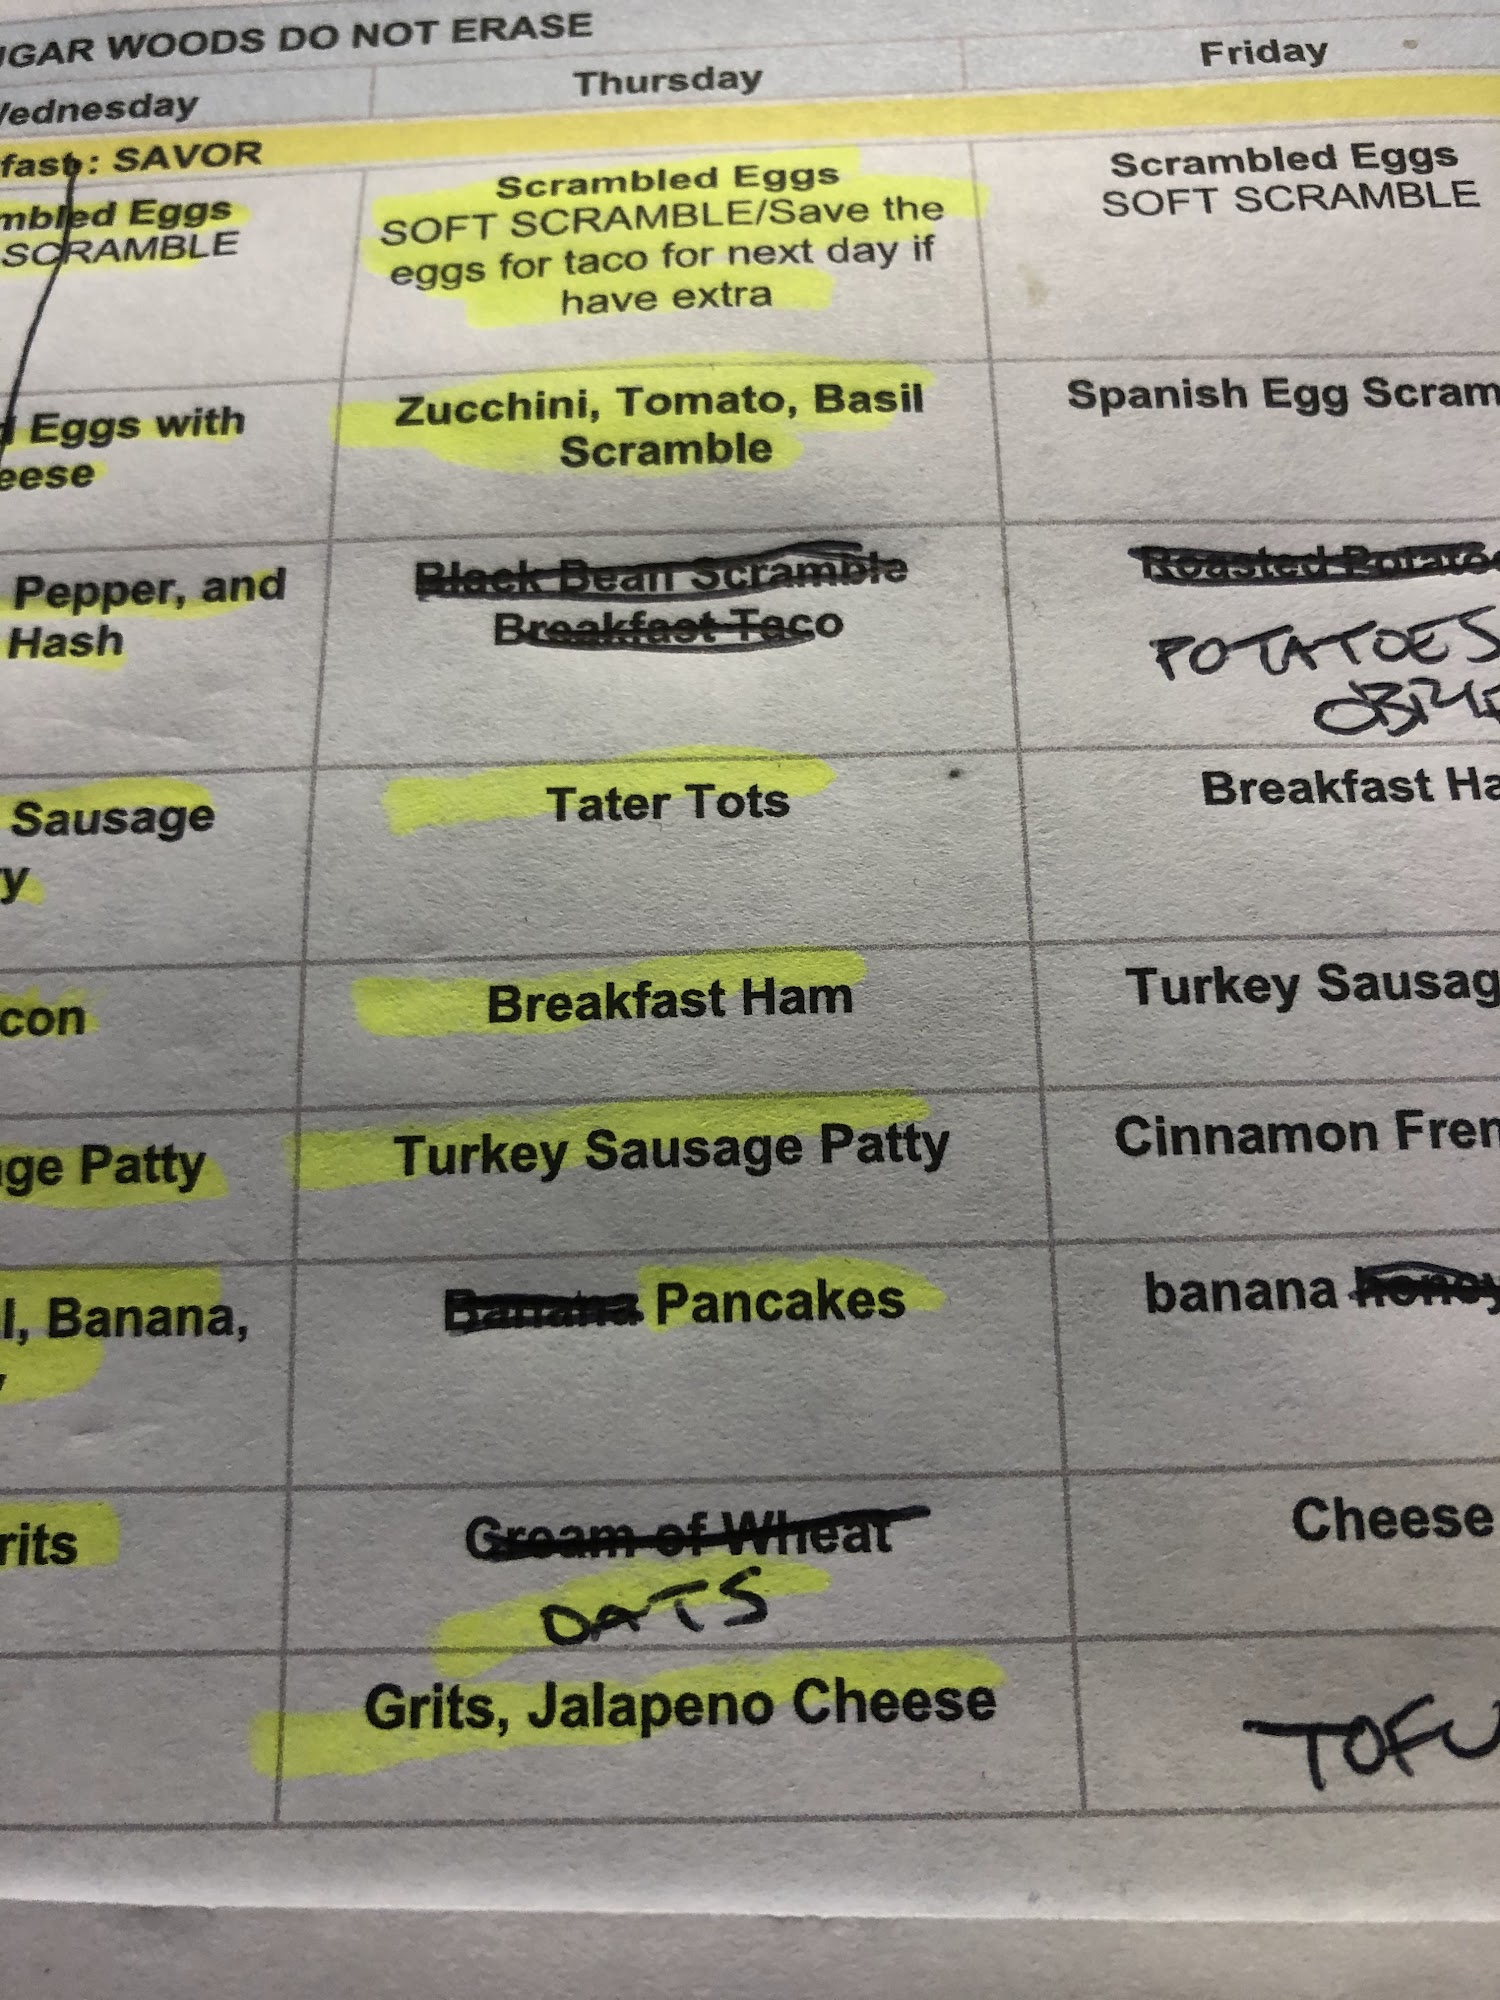 UGAR WOODS DO NOT ERASE
Wednesday Thursday Friday
fast: SAVOR
mbled Eggs
SCRAMBLE
Scrambled Eggs
SOFT SCRAMBLE/Save the
eggs for taco for next day if
have extra
Scrambled Eggs
SOFT SCRAMBLE
d Eggs with
eese
Zucchini, Tomato, Basil
Scramble
Spanish Egg Scram
Pepper, and
Hash
Black Bean Scramble
Breakfast Taco
Roasted Potatoe
POTATOES
OBR
Sausage
y
Tater Tots
Breakfast Ha
con
Breakfast Ham
Turkey Sausag
ge Patty
Turkey Sausage Patty
Cinnamon Fren
l, Banana,
Banana Pancakes
banana honey
rits
Cream of Wheat
OATS
Cheese
Grits, Jalapeno Cheese
TOFU